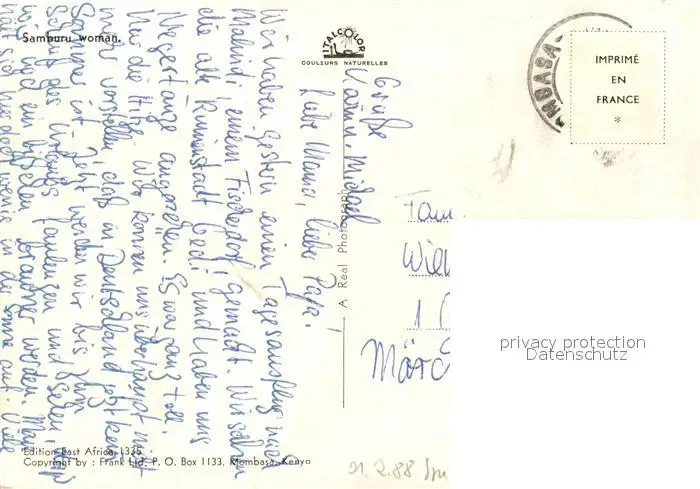 Samburu woman.
ITALCOLOR
COULEURS NATURELLES
MBASA
IMPRIMÉ
EN
FRANCE
*
Liebe Mama, liebe Papa!
Wir haben gestern einen Tagesausflug nach
Malindi, einem Fischerdorf gemacht. Wir sahen
die alte Ruinenstadt Gedi und haben uns
Negertänze angesehen. Es war ganz toll.
Nur die Hitze! Wir können uns überhaupt nicht
mehr vorstellen, daß in Deutschland jetzt kein
Sommer ist. Jetzt werden wir bis zum
Schluß des Urlaubs faulenzen und sehen, daß
wir noch ein bißchen brauner werden. Man
hält sich nur wenig in der Sonne auf. Viele
Grüße
Michael
A Real Photograph
Wien
1
privacy protection
Datenschutz
Edition East Africa 1335
Copyright by : Frank Ltd. P. O. Box 1133, Mombasa, Kenya
21.2.88